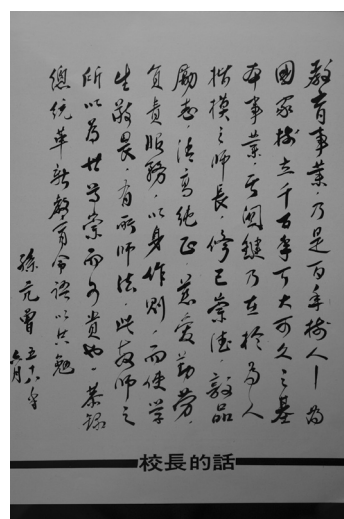 教育事業,乃是百年樹人—為
國家樹立千百年可大可久之基
本事業,其關鍵乃在於為人
楷模之師長,修己崇德,敦品
勵志,清高純正,慈愛勤勞,
負責服務,以身作則,而使學
生敬畏,有所師法,此教師之
所以為世尊崇而可貴也。恭錄
總統革新教育令語以共勉
孫亢曾 五十八年
六月
校長的話